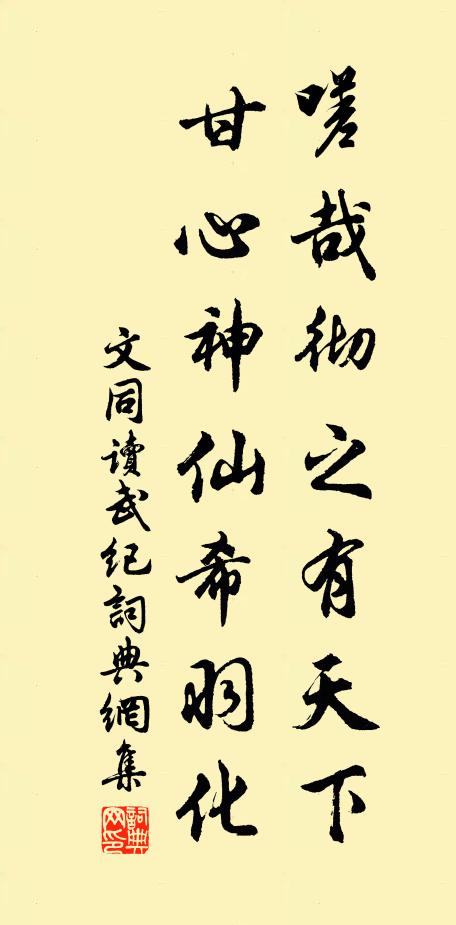 嗟哉彻之有天下
甘心神仙希羽化
文同讀武纪詞典網集
詞典
网印